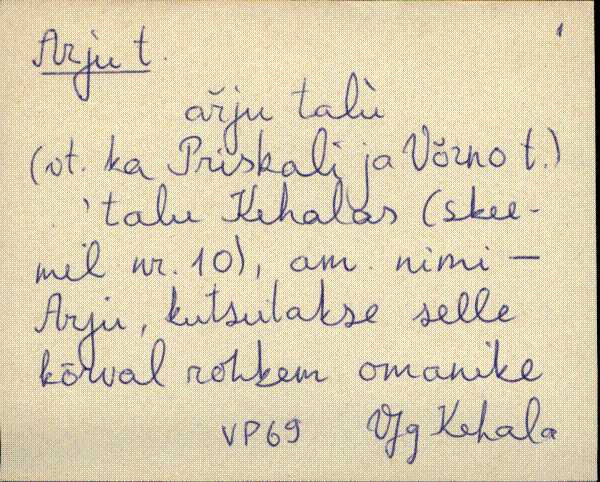 1
Arju t.
ařju talù
(vt. ka Priskali ja Võrno t.)
'talu Kehalas (skee-
mil nr. 10), am. nimi —
Arju, kutsutakse selle
kõrval rohkem omanike
VP69 VJg Kehala